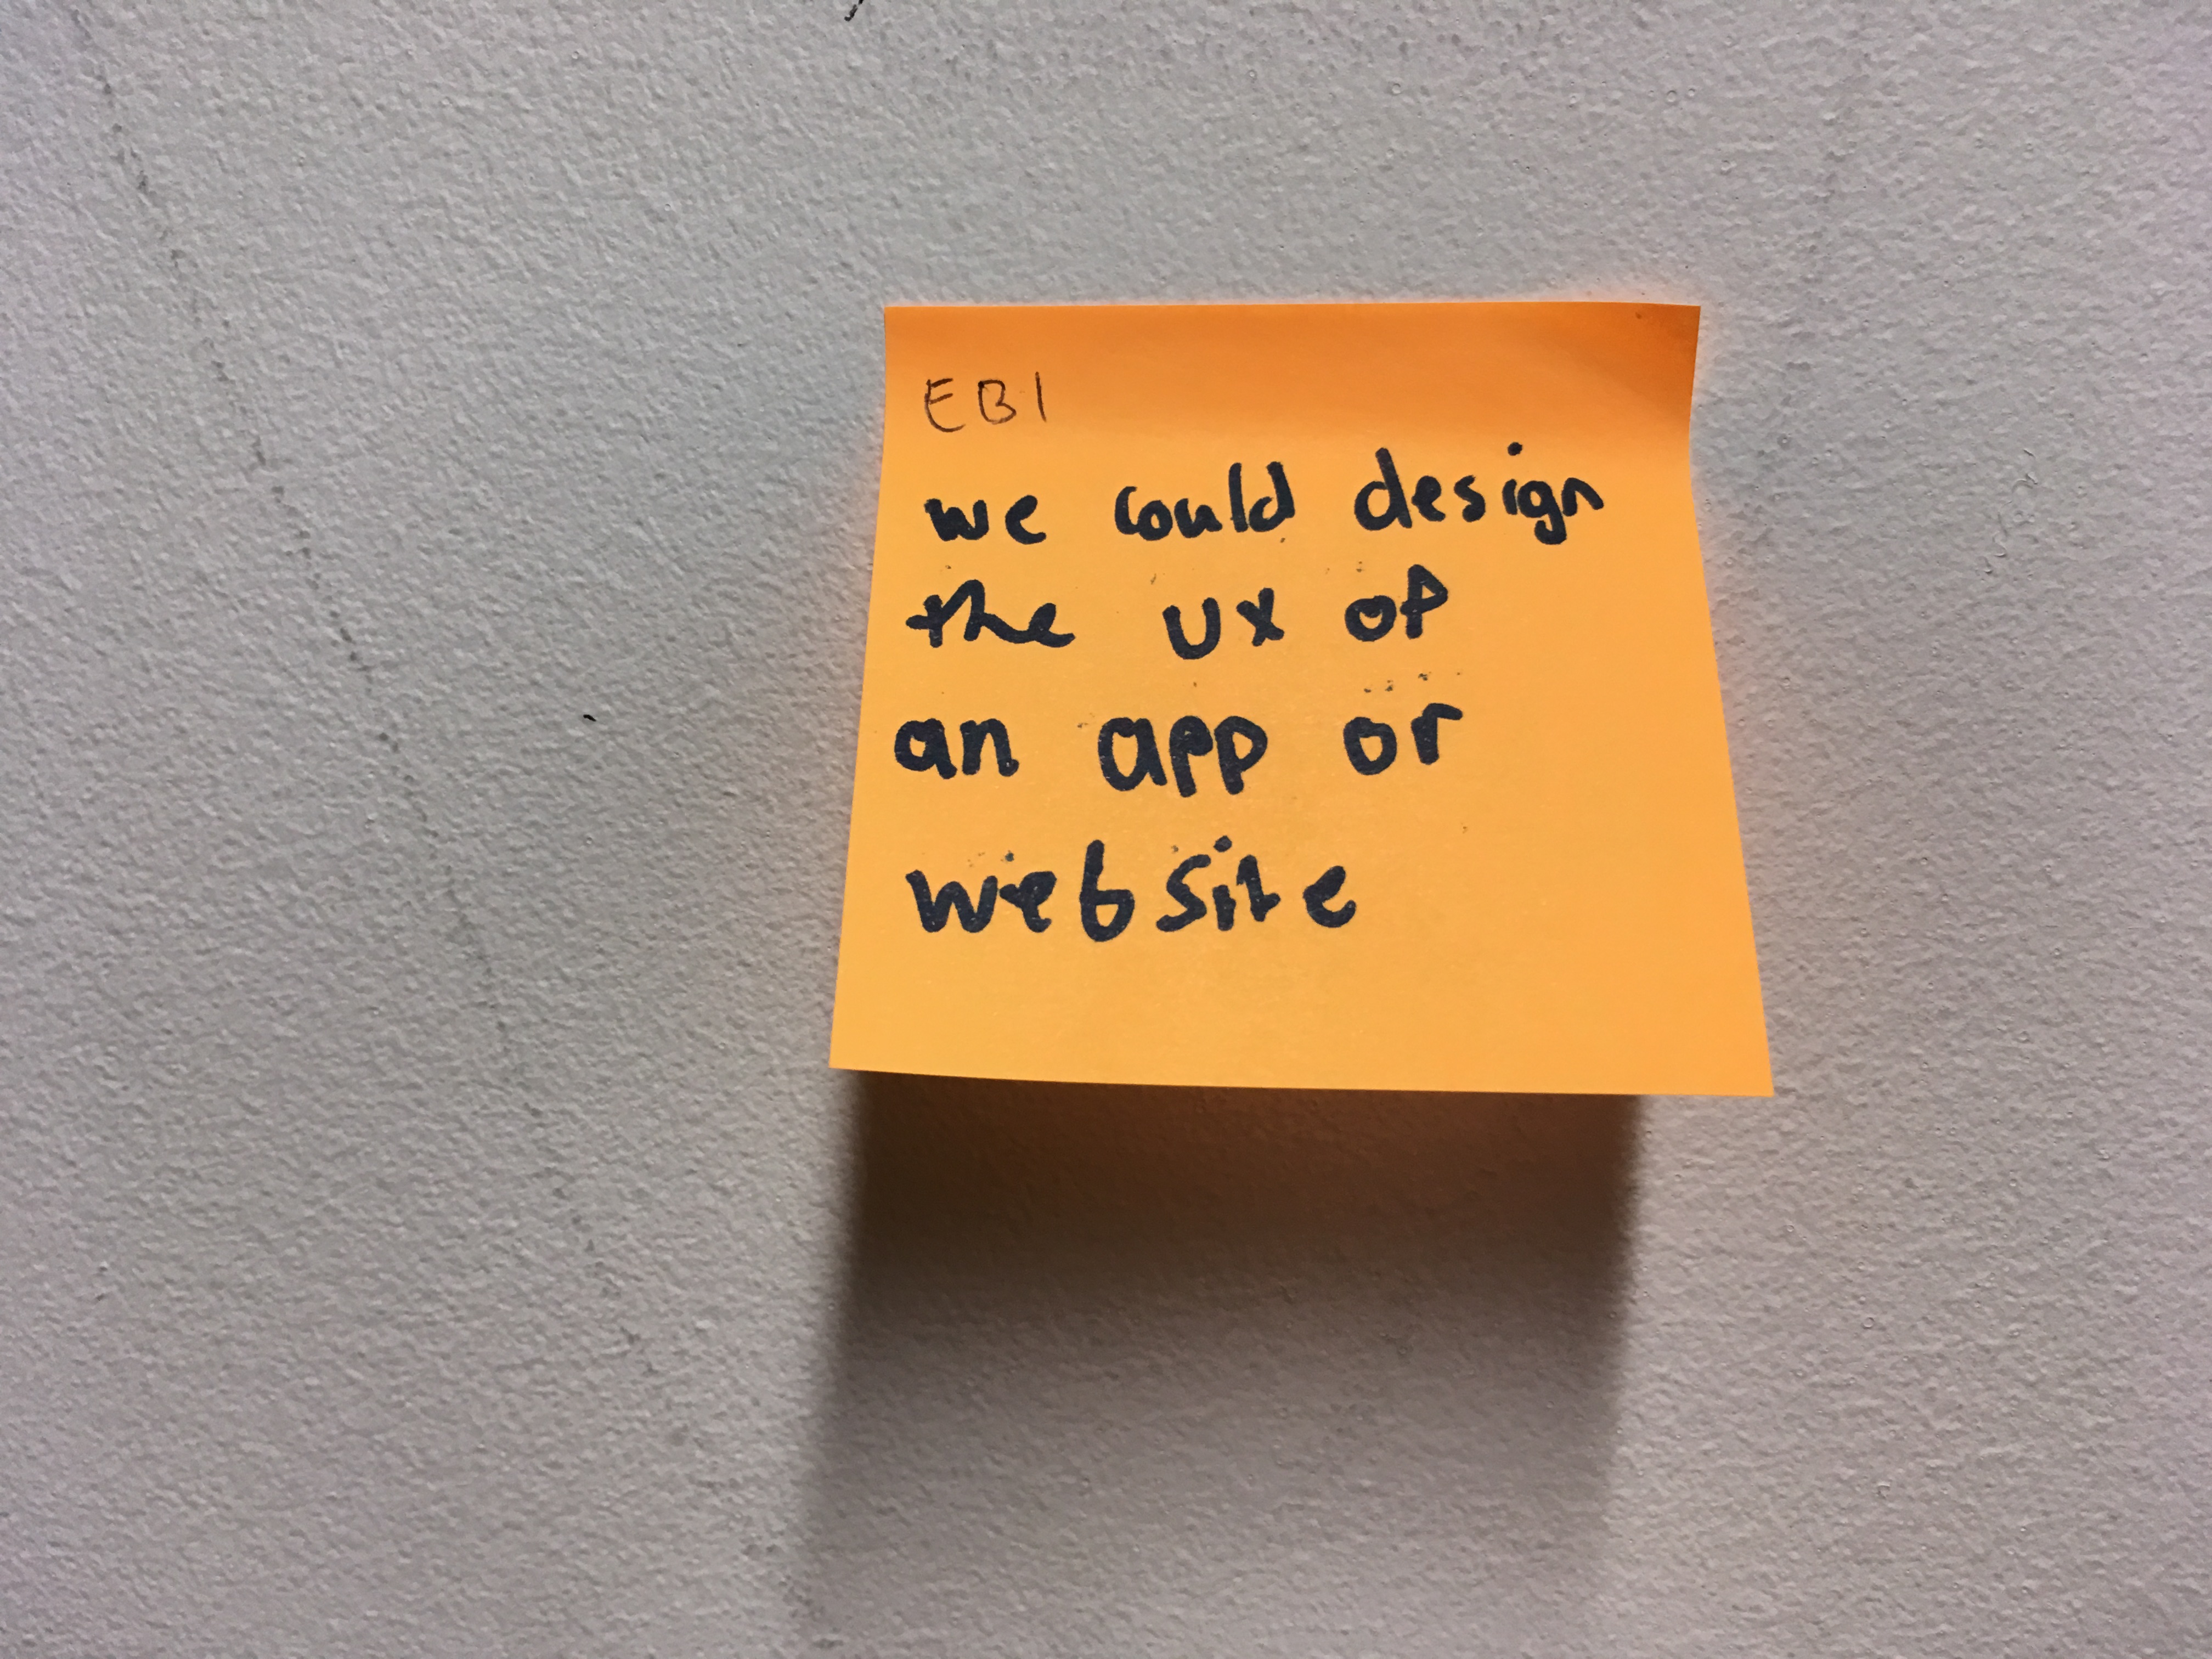 EBI
we could design
the UX of
an app or
website